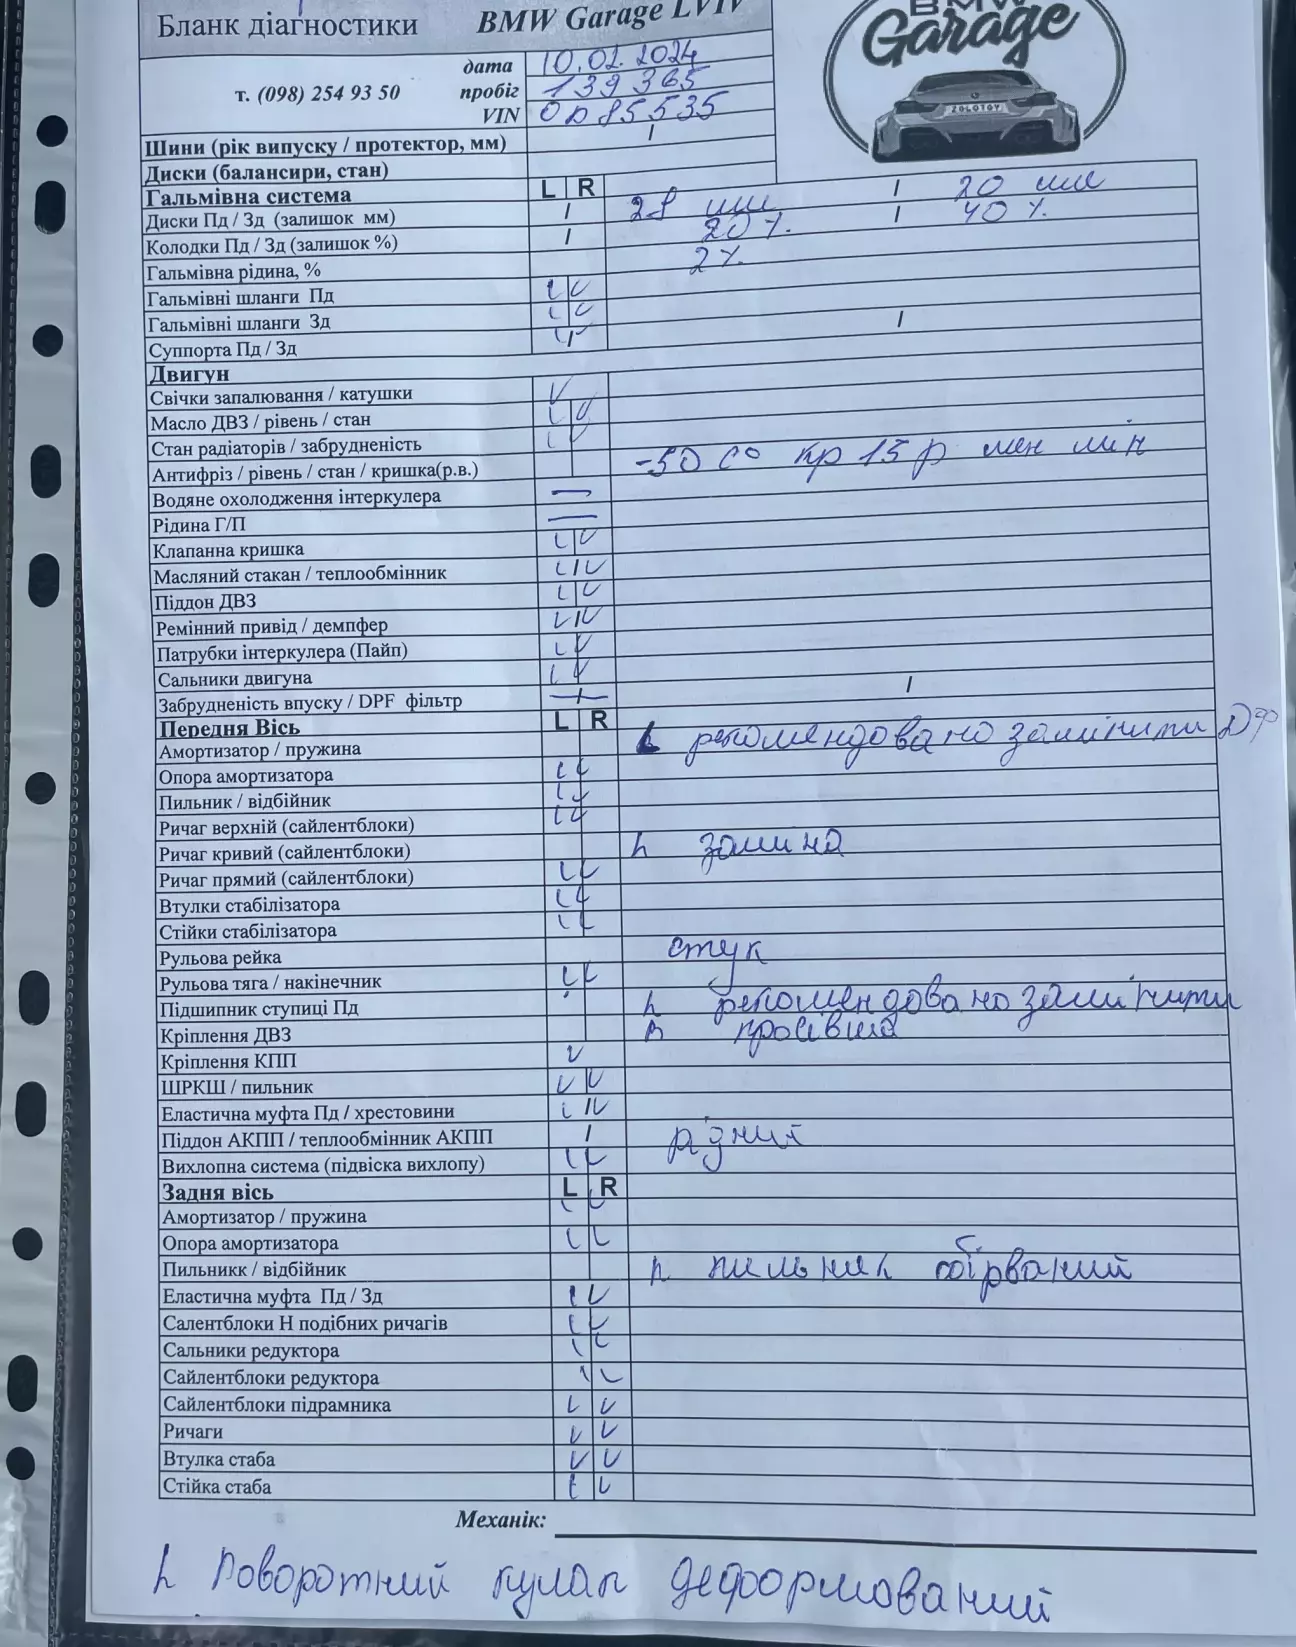 Бланк діагностики BMW Garage LVIV
BMW Garage
ZOLOTOY
дата 10.02.2024
т. (098) 254 93 50 пробіг 139 365
VIN 0D85535
Шини (рік випуску / протектор, мм) /
Диски (балансири, стан)
Гальмівна система L R
Диски Пд / Зд (залишок мм) / 28 мм / 20 мм
Колодки Пд / Зд (залишок %) / 20 % / 40 %
Гальмівна рідина, % 2%
Гальмівні шланги Пд V V
Гальмівні шланги Зд V V
Суппорта Пд / Зд V / V /
Двигун
Свічки запалювання / катушки V
Масло ДВЗ / рівень / стан V V
Стан радіаторів / забрудненість V V
Антифріз / рівень / стан / кришка(р.в.) -50 C° кр 15 р мен мін
Водяне охолодження інтеркулера —
Рідина Г/П —
Клапанна кришка V V
Масляний стакан / теплообмінник V / V
Піддон ДВЗ V V
Ремінний привід / демпфер V / V
Патрубки інтеркулера (Пайп) V V
Сальники двигуна V V
Забрудненість впуску / DPF фільтр — / — /
Передня Вісь L R
Амортизатор / пружина L рекомендовано замінити
Опора амортизатора V V
Пильник / відбійник V V
Ричаг верхній (сайлентблоки) V V
Ричаг кривий (сайлентблоки) заміна
Ричаг прямий (сайлентблоки) V V
Втулки стабілізатора V V
Стійки стабілізатора V V
Рульова рейка стук
Рульова тяга / накінечник V V
Підшипник ступиці Пд рекомендовано замінити
Кріплення ДВЗ просівша
Кріплення КПП V
ШРКШ / пильник V V
Еластична муфта Пд / хрестовини V / V
Піддон АКПП / теплообмінник АКПП / рідний
Вихлопна система (підвіска вихлопу) V V
Задня вісь L R
Амортизатор / пружина V V
Опора амортизатора V V
Пильникк / відбійник пильник обірваний
Еластична муфта Пд / Зд V V
Салентблоки Н подібних ричагів V V
Сальники редуктора V V
Сайлентблоки редуктора V V
Сайлентблоки підрамника V V
Ричаги V V
Втулка стаба V V
Стійка стаба V V
Механік:
поворотний кулак деформований